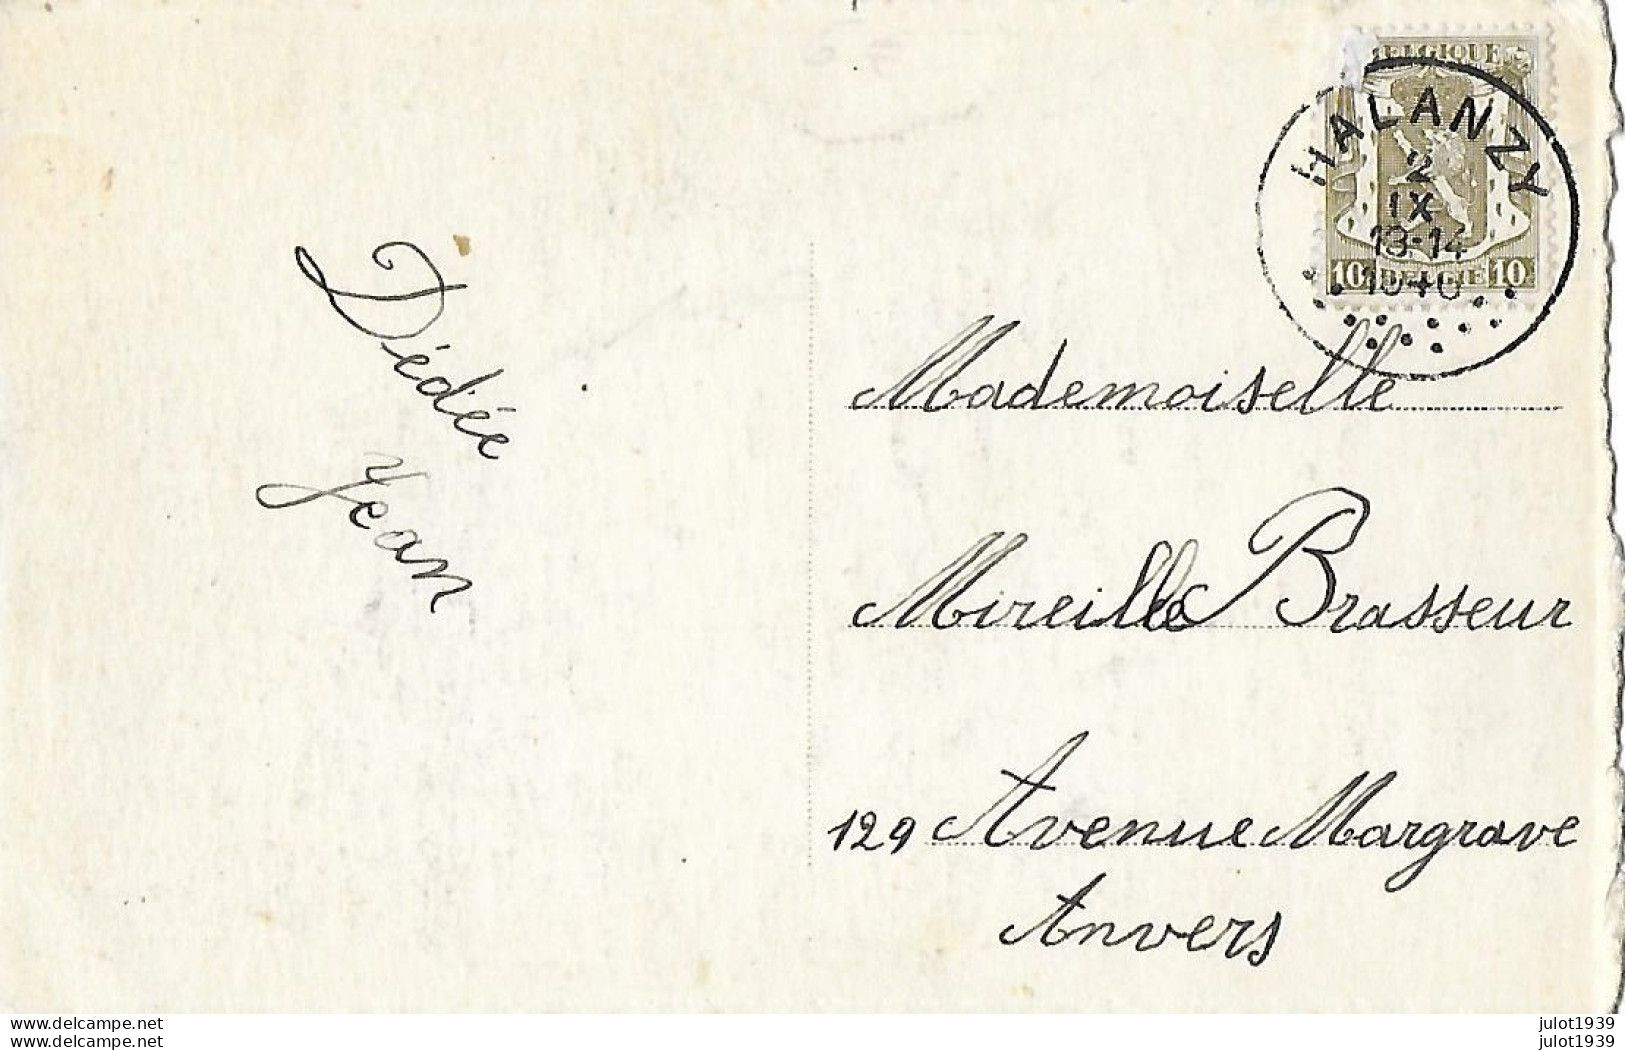 BELGIQUE
HALANZY
2
IX
13-14
1940
10 BELGIE 10
Dédée
Jean
Mademoiselle
Mireille Brasseur
129 Avenue Margrave
Anvers
www.delcampe.net
www.delcampe.net
julot1939
julot1939